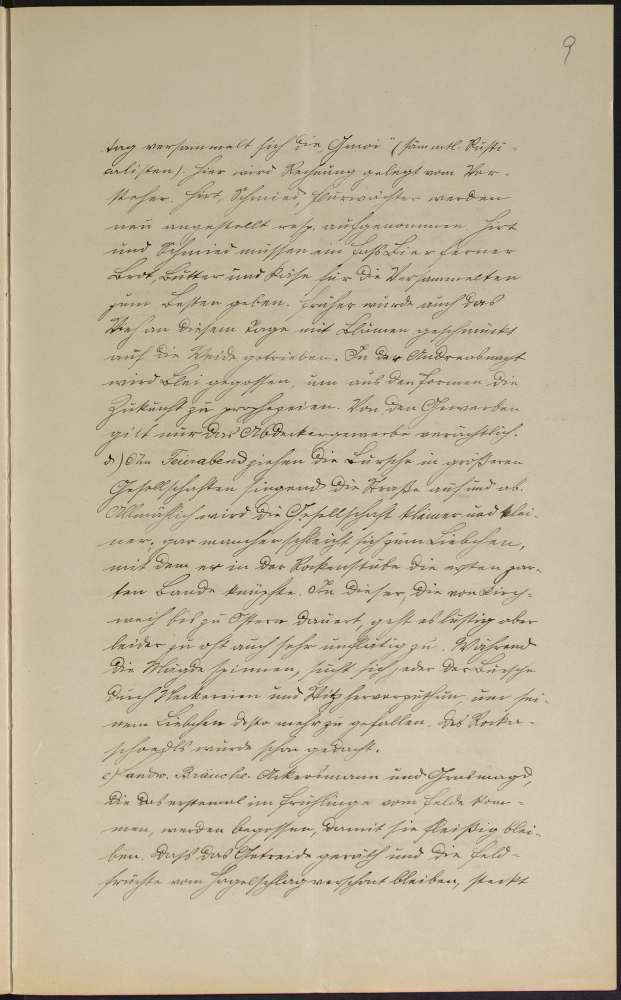 9
tag versammelt sich die Gmoi" (sämmtl. Rusti-
calisten). Hier wird Rechnung gelegt vom Vor-
steher. Hirt, Schmied, Flurwächter werden
neu angestellt resp. aufgenommen. Hirt
und Schmied müssen ein Faß Bier ferner
Brot, Butter und Käse für die Versammelten
zum Besten geben. Früher wurde auch das
Vieh an diesem Tage mit Blumen geschmückt
auf die Weide getrieben. In der Andreasnacht
wird Blei gegossen, um aus den Formen die
Zukunft zu prophezeien. Von den Gewerben
gilt nur das Abdeckergewerbe verächtlich.
d) Am Feierabend ziehen die Bursche in größeren
Gesellschaften singend die Straße auf und ab.
Allmählich wird die Gesellschaft kleiner und klei-
ner, gar mancher schleicht sich zum Liebchen,
mit dem er in der Rockenstube die ersten zar-
ten Bande knüpfte. In dieser, die von Kirch-
weih bis zu Ostern dauert, geht es lustig aber
leider zu oft auch sehr unflätig zu. Während
die Mägde spinnen, sucht sich jeder der Bursche
durch Neckereien und Witz hervorzuthun um sei-
nem Liebchen desto mehr zu gefallen. Des Rocka-
schoepls wurde schon gedacht.
e) Landw. Bräuche. Ackersmann und Grasmagd,
die das erstemal im Frühlinge vom Felde kom-
men, werden begossen, damit sie fleißig blei-
ben. Daß das Getreide geräth und die Feld-
früchte vom Hagelschlag verschont bleiben, steckt